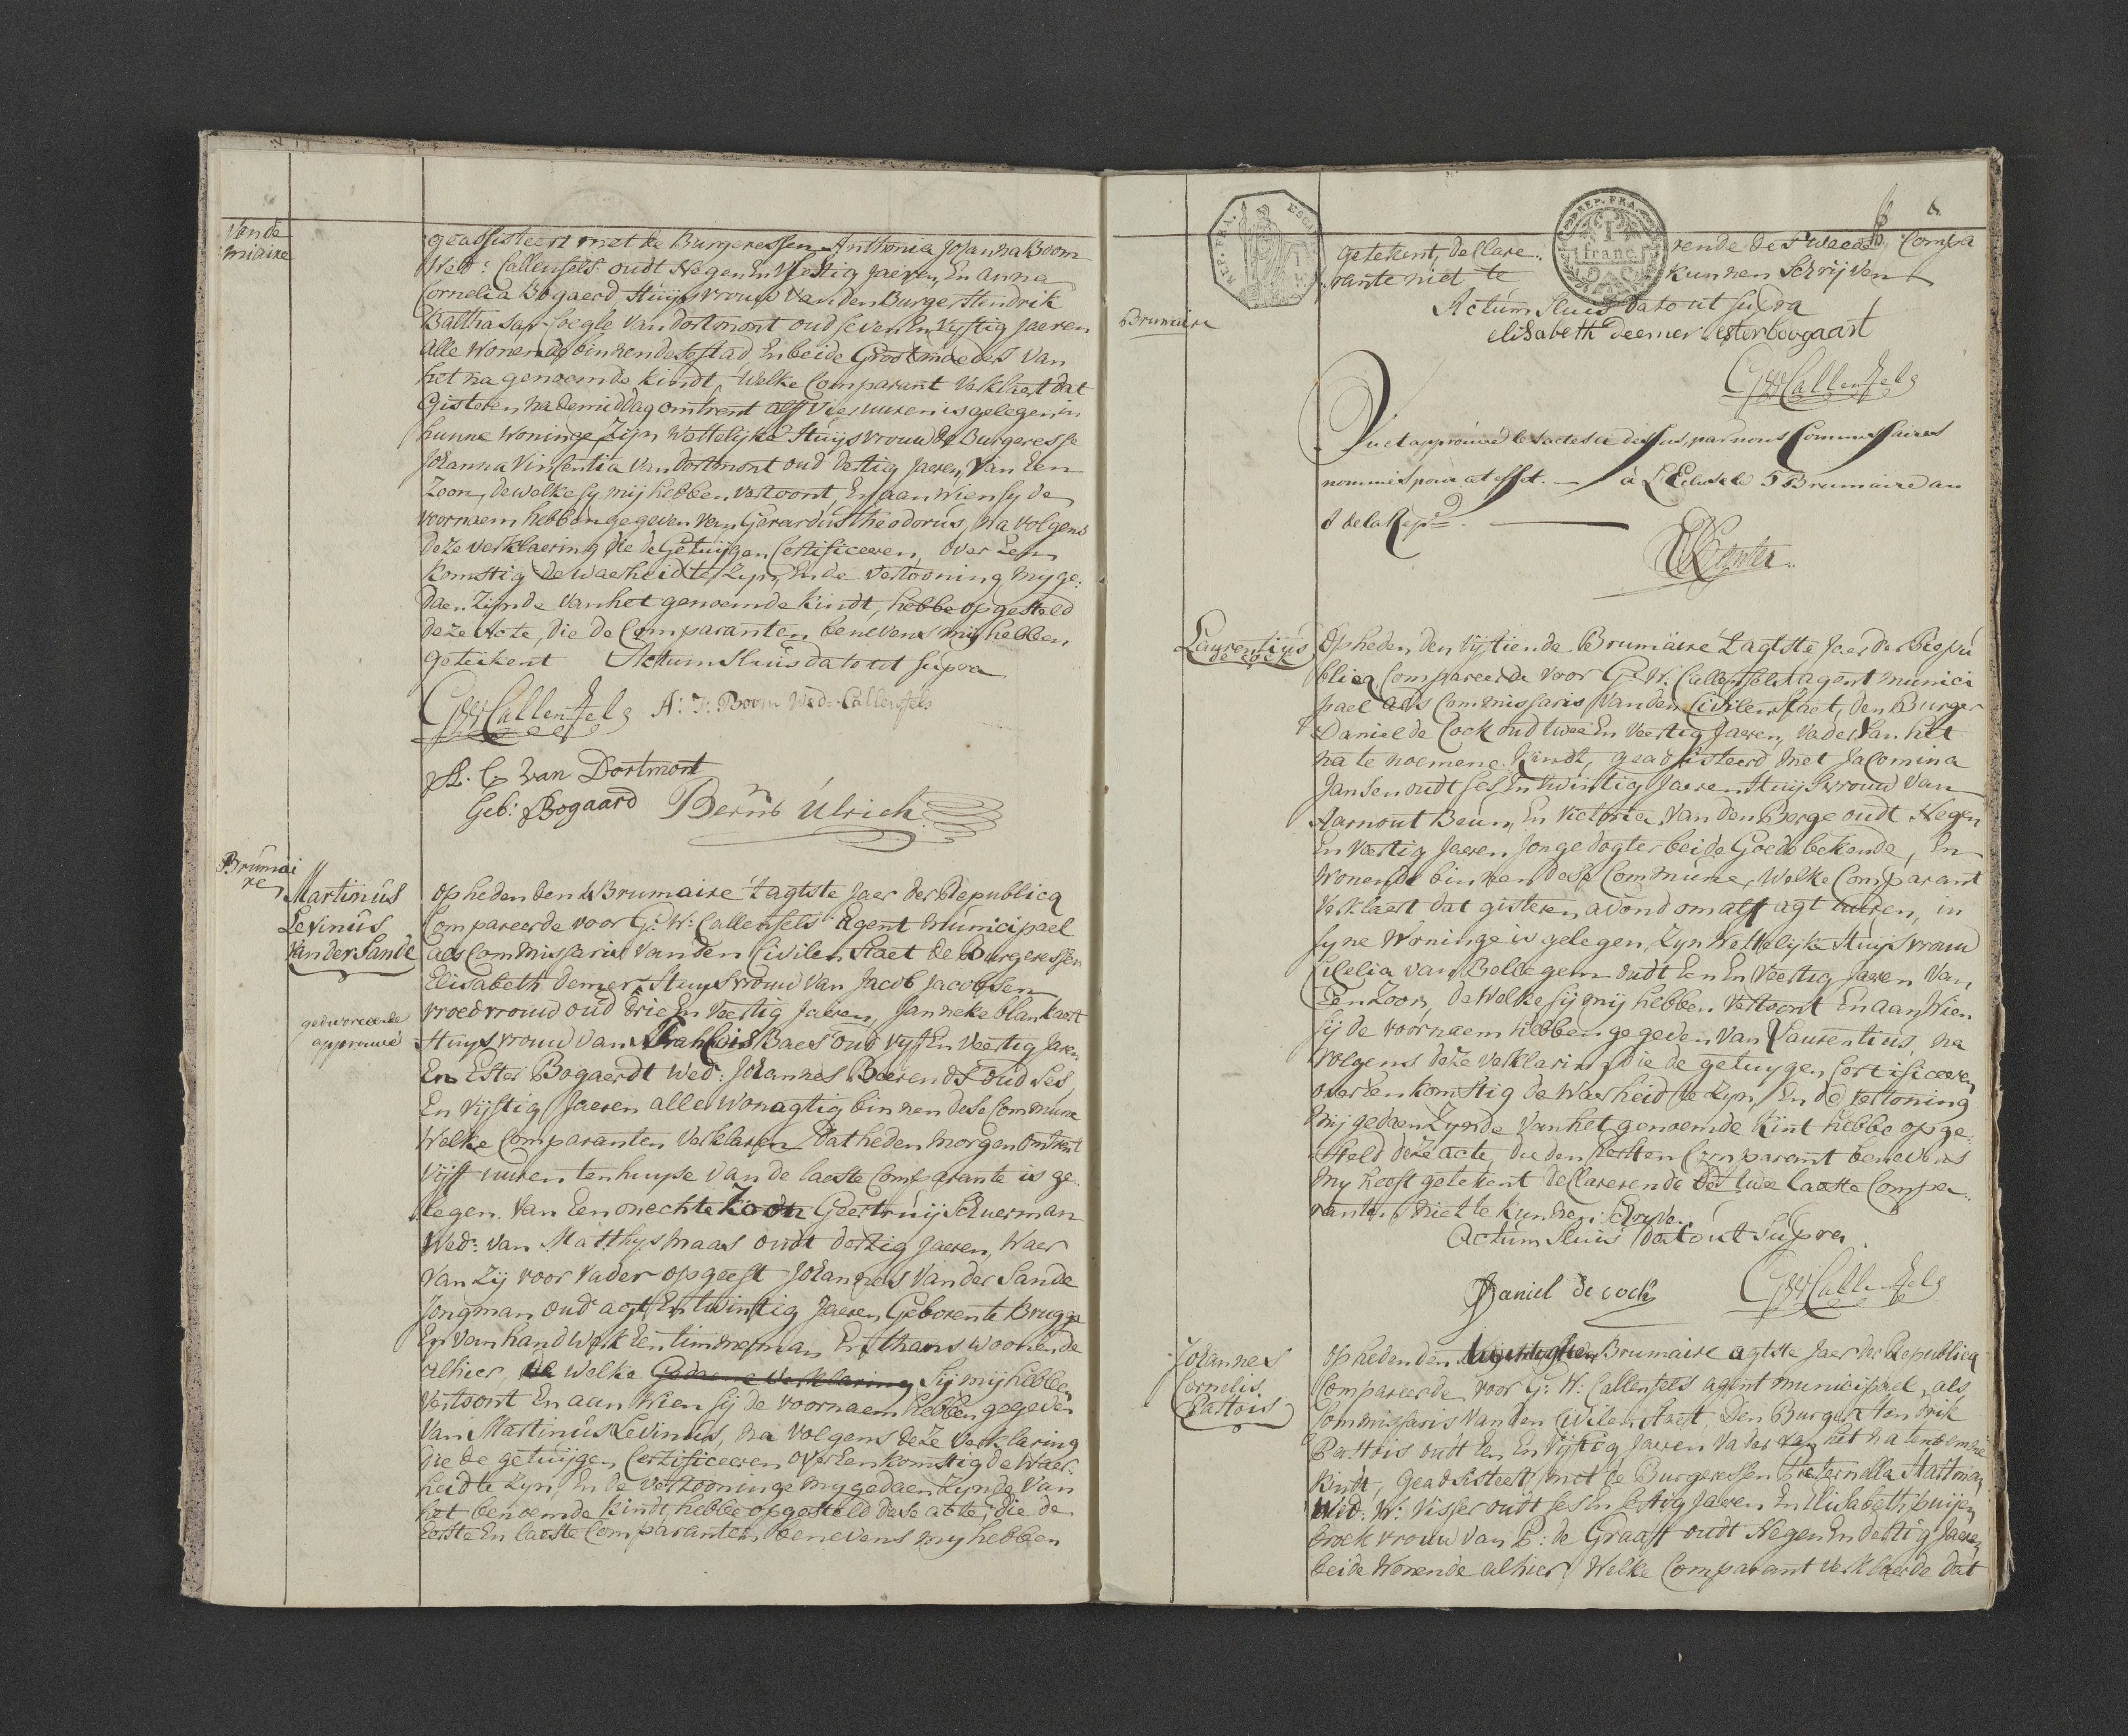 Vande
miaire
geassisteert met de Burgeressen Anthonia Johanna Boom
Wed: Callenfels oudt Negen En Vijftig Jaeren, En Anna
Cornelia Bogaerd Huijsvrouw Van den Burger Hendrik
Balthasar van Dortmont oud seven En Vijftig Jaeren
alle Wonende binnen dese stad En beide Grootmoeders Van
het na genoemde Kindt, Welke Comparant Verklaert dat
Gisteren, na de middag omtrent alf Vier uuren is gelegen in
hunne Woninge Zijn Wettelijke Huijsvrouw de Burgeresse
Johanna Vinsentia Van Dortmont oud dertig Jaeren, Van Een
Zoon, dewelke sy mij hebben Vertoont, En aan Wien sy de
voornaem hebben gegeven Van Gerardus Theodorus, na volgens
deze verklaering die de Getuijgen Certificeeren, over Een
komstig de Waerheid te Zyn, En de Vertooning my ge:
daen Zijnde Van het genoemde Kindt, hebbe opgesteld
deze Acte, die de Comparanten benevens mij hebben
geteikent Actum Sluis dato ut supra
GW Callenfels A: J: Boom Wed: Callenfels
A. C. Van Dortmont
Geb: Bogaard Bernd Ulrich
Brumai
re
Martinus
Levinus
Van der Sande
approuvé
op heden den 4 Brumaire 't agtste Jaer der Republicq
Compareerde voor G: W: Callenfels Agent municipael
als Commissaris Van den Civilen Staet de Burgeressen
Elisabeth Demer Huysvrouw Van Jacob Jacobsen
vroedvrouw oud drie En Veertig Jaeren, Janneke blankaert
Huysvrouw Van Francois Baes oud vyf En Veertig Jaren
En Ester Bogaerdt Wed: Johannes Beerends oud ses
En Vijftig Jaeren alle Wonagtig binnen dese Commune
Welke Comparanten Verklaren dat heden morgen omtrent
Vijff uuren ten huyse Van de laeste Comparante is ge
legen. Van Een onechte Zoon Geertruij Schuerman
Wed: van Matthys Maas oudt dertig Jaeren, Waer
Van Zij voor Vader opgeeft Johannes Van der Sande
Jongman oud agt En twintig Jaeren, Geboren te Brugge
En van handwerk Een timmerman En thans woonende
alhier, de Welke Gedaene Verklaring Sij mij hebben
Vertoont En aan Wien sij de voornaem hebben gegeven
Van Martinus Levinus, na Volgens deze Verklaring
die de getuijgen Certificeeren over Een komstig de Waer:
heid te Zyn, En de Vertooninge my gedaen Zynde Van
het benoemde Kindt, hebbe opgesteld dese acte, die de
Eerste En laeste Comparanten, benevens my hebben
REP. FRA.
REP. FRA.
1
franc
Brumaire
getekent, declare rende de tweede Compa
rante niet te kunnen Schrijven
Actum Sluis dato ut supra
elisabeth deemer ester boogaart
GW Callenfels
Vu et approuvé les actes ci dessus, par nous Commissaires
nommés pour cet effet. — à L'Ecluse le 5 Brumaire an
8 de la Rep:
Laurentius
de Cock
Op heden den Vijftiende Brumaire 't agtste Jaer der Repu
blicq Compareerde voor G: W: Callenfels agent munici
pael als Commissaris Van den Civilen Staet, den Burger
Daniel de Cock oud twee En Veertig Jaeren, Vader Van het
na te noemene Kindt, geadsisteerd met Jacomina
Jansen oudt ses En twintig Jaeren Huijsvrouw Van
Aarnout Beun, En Victoria Van den Berge oudt Negen
En Veertig Jaeren Jonge dogter beide Goede bekende, En
Wonende binnen dese Commune, Welke Comparant
Verklaert dat gisteren avond om alf agt uuren, in
syne Woninge is gelegen, Zyn Wettelijke Huijsvrouw
Cicelia Van Bellegem oudt Een En Veertig Jaeren Van
Een Zoon, de Welke sij mij hebben Vertoont En aan Wien
sij de Voornaem hebben gegeven Van Laurentius, na
volgens deze Verklaring die de getuygen Certificeeren
over Een komstig de Waerheid te Zyn, En de Vertoning
mij gedaen Zynde Van het genoemde Kint hebbe opge
steld deze acte die den Eersten Comparant benevens
my heeft getekent declarerende de twee laeste Compa
ranten niet te kunnen schryven
Actum Sluis dato ut supra
Daniel de cock GW Callenfels
Johannes
Cornelis
Pattois
op heden den Brumaire agtste Jaer der Republicq
Compareerde voor G: W: Callenfels agent municipael, als
Commissaris Van den Civilen Staet, Den Burger Hendrik
Pattois oudt Een En Vijftig Jaeren Vader Van het na tenoemene
Kindt, Geadsisteert met de Burgeressen Pieternella Hartman
Wed: W: Visser oudt ses En sestig Jaeren En Elisabeth Buijen
broek vrouw Van P: de Graaft oudt Negen En dertig Jaeren
beide Wonende alhier, Welke Comparant Verklaerde dat